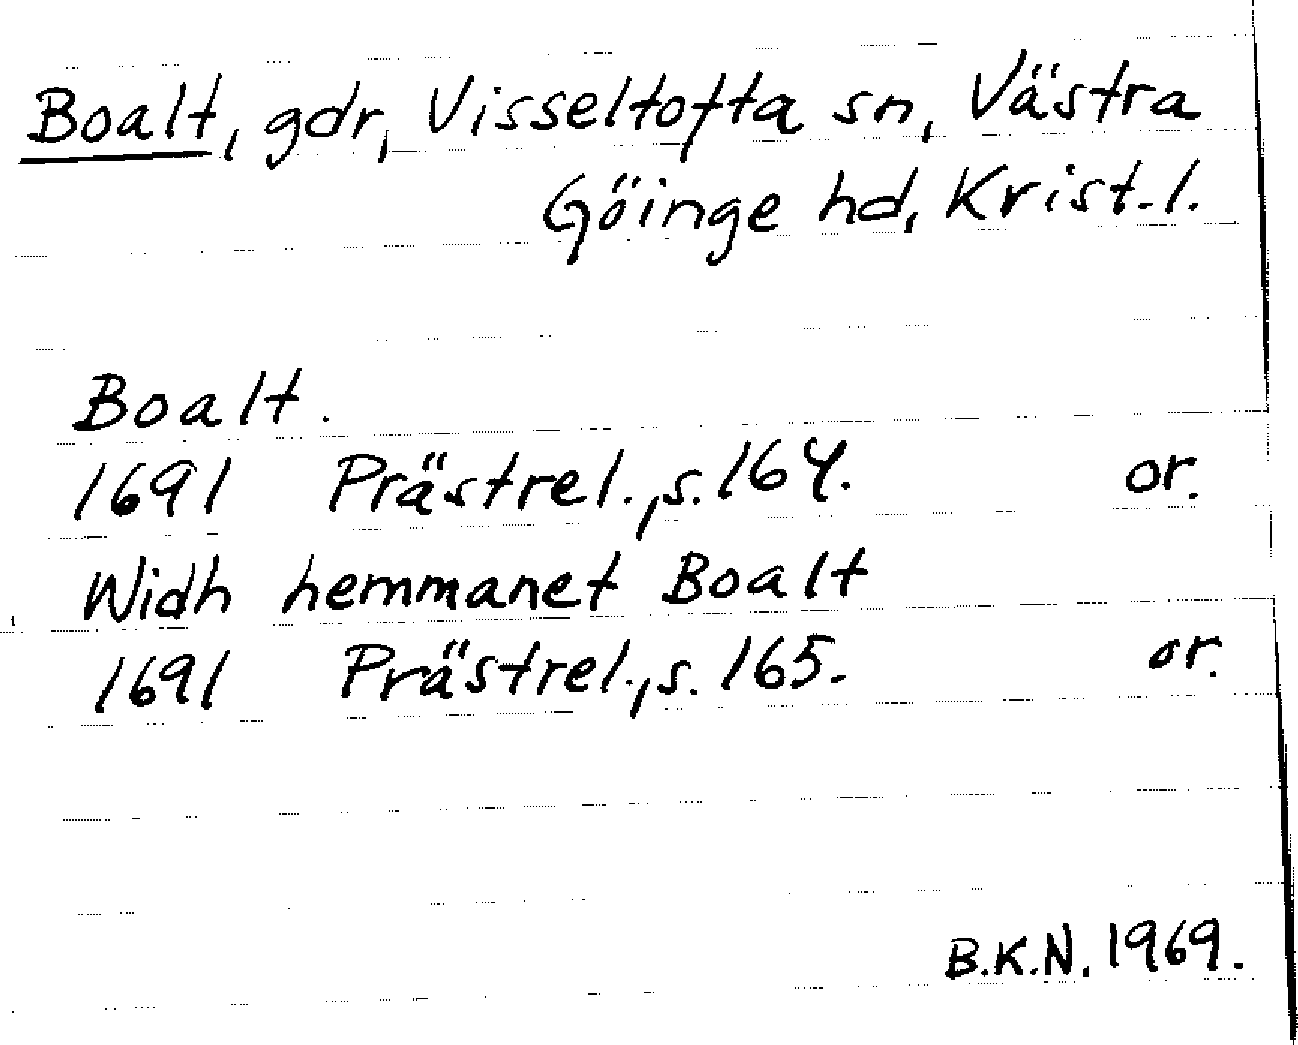 Boalt, gdr, Visseltofta sn, Västra
Göinge hd, Krist.l.
Boalt.
1691 Prästrel., s. 164. or.
Widh hemmanet Boalt
1691 Prästrel., s. 165. or.
B.K.N. 1969.